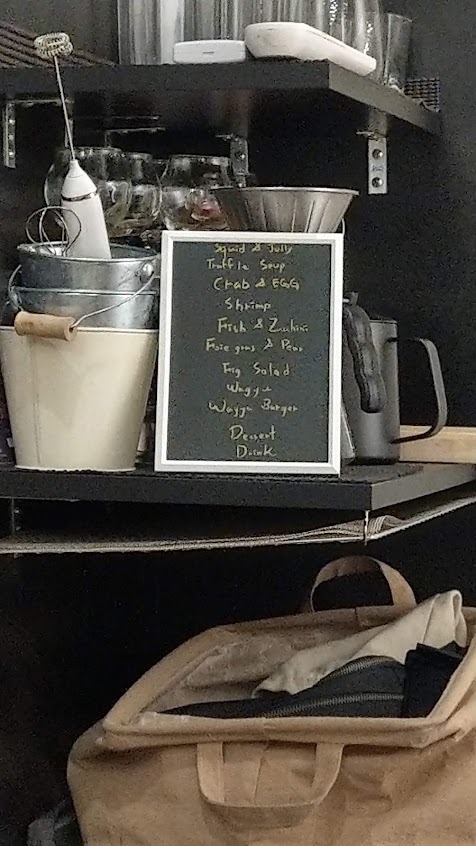 Squid & Jelly
Truffle Soup
Crab & EGG
Shrimp
Fish & Zucchini
Foie gras & Pear
Fig Salad
Wagyu
Wagyu Burger
Dessert
Drink